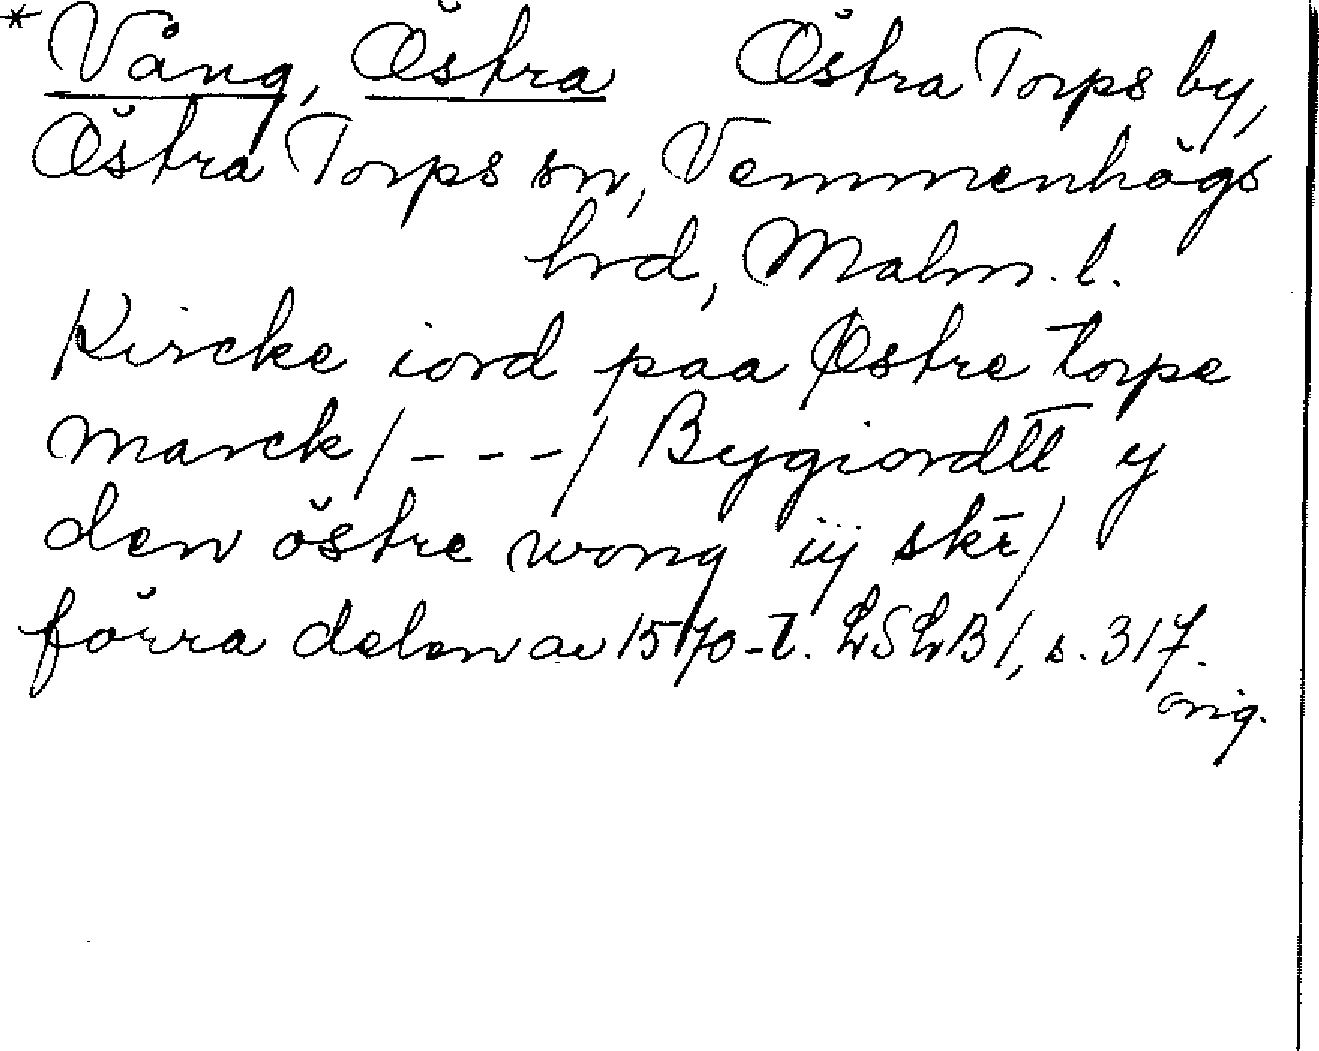 * Vång, Östra Östra Torps by,
Östra Torps sn, Vemmenhögs
hrd, Malm. l.
Kircke iord paa Østre torpe
marck/---/ Bygiordtt y
den östre wong iij skē/
förra delen av 1570-t. LSLB 1, s. 317.
orig.